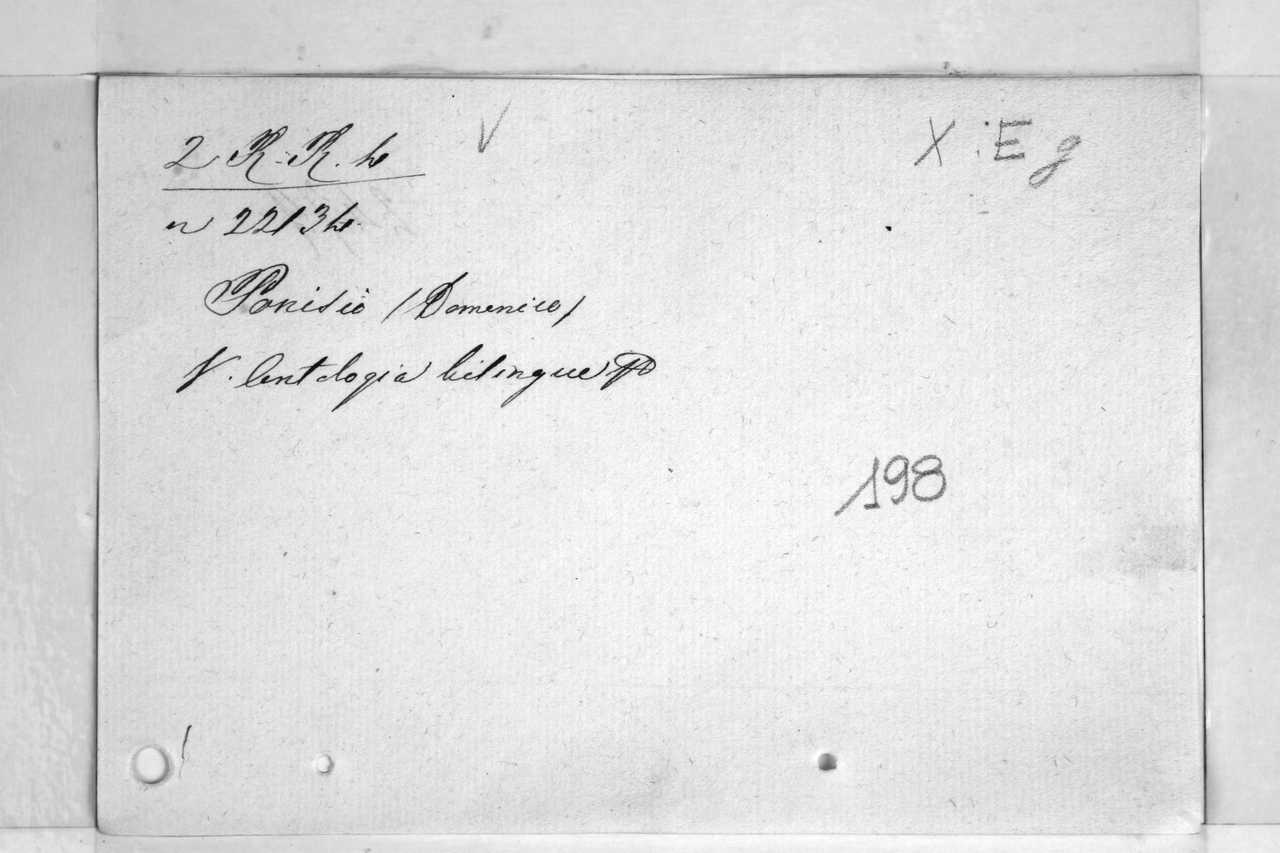 2 R. R. h V X . E g
n 22134
Ponisio (Domenico)
V. Antologia bilingue
198